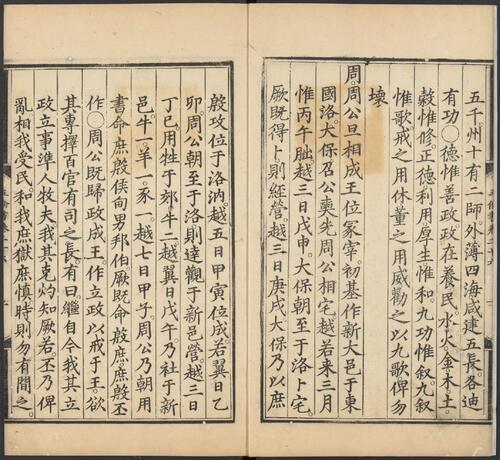 五千州十有二師外薄四海咸建五長各迪
有功○德惟善政政在養民水火金木土
穀惟修正德利用厚生惟和九功惟敘九敘
惟歌戒之用休董之用威勸之以九歌俾勿
壞
周周公旦相成王位冢宰初基作新大邑于東
國洛太保召公奭先周公相宅越若來三月
惟丙午朏越三日戊申太保朝至于洛卜宅
厥既得卜則經營越三日庚戌太保乃以庶
殷攻位于洛汭越五日甲寅位成若翼日乙
卯周公朝至于洛則達觀于新邑營越三日
丁巳用牲于郊牛二越翼日戊午乃社于新
邑牛一羊一豕一越七日甲子周公乃朝用
書命庶殷侯甸男邦伯厥既命殷庶庶殷丕
作○周公既歸政成王作立政以戒于王欲
其專擇百官有司之長有曰繼自今我其立
政立事準人牧夫我其克灼知厥若丕乃俾
亂相我受民和我庶獄庶慎時則勿有間之